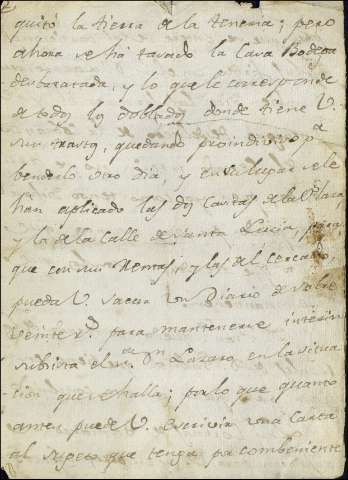 quitó la tierra de la teneria; pero
ahora se há tasado la Casa Bodega
desbaratada, y lo que le corresponde
de todos los doblados donde tiene V.
sus trastos, quedando proindiviso pa
benderlo otro dia, y en su lugar se le
han aplicado las dos Casitas de la Plaza,
y la de la Calle de Santa Lucia, para
que con sus Rentas, y las del Cercado
pueda V. sacar un Diario de sobre
veinte rs. para mantenerse interin
subsista el Sr. Dn Lazaro en la situa
cion que se halla; por lo que quanto
antes puede V. escrivir una Carta
al sugeto que tenga por combeniente